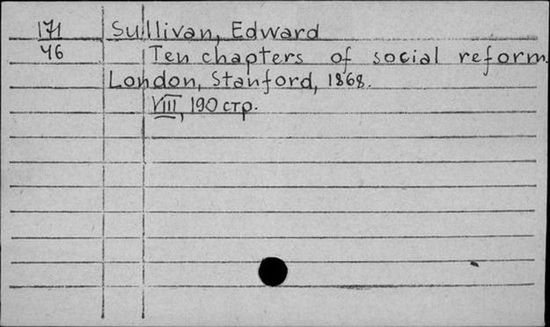 171 Sullivan, Edward
46 Ten chapters of social reform.
London, Stanford, 1868.
VIII, 190 стр.